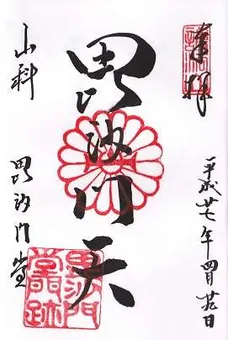 奉拝
平成廿七年四月廿日
毘沙門天
山科
毘沙門堂
毘沙門
堂跡